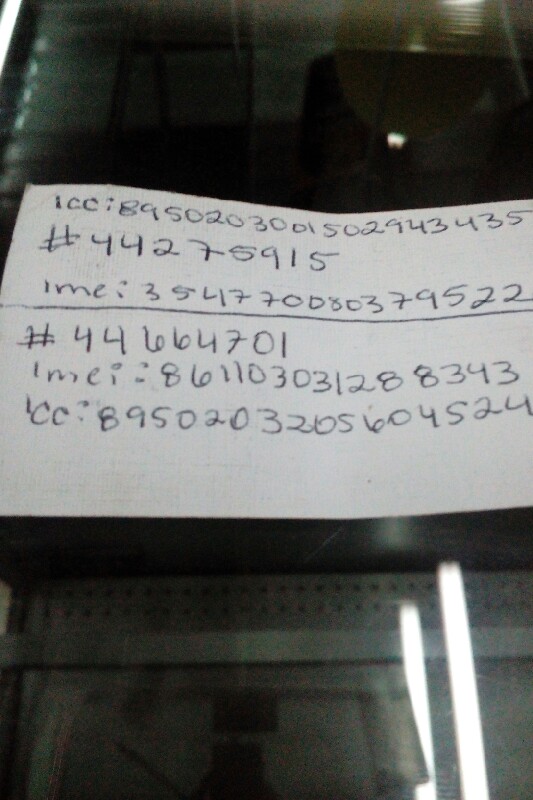 icc:8950203001502943435
#44275915
ime: 354770080379522
#44664701
imei:861103031288343
icc:8950203205604524